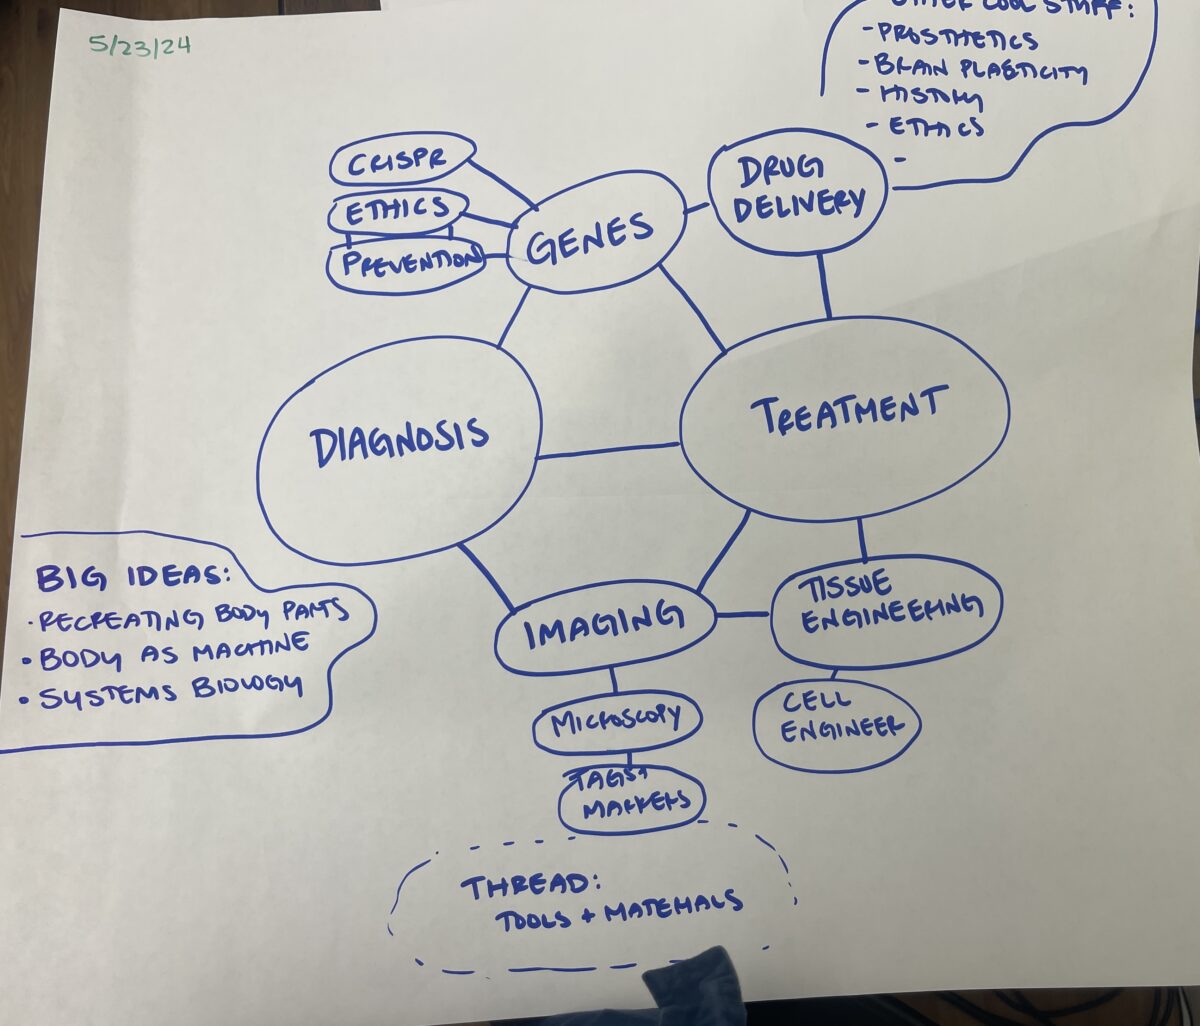 5/23/24
OTHER COOL STUFF:
- PROSTHETICS
- BRAIN PLASTICITY
- HISTORY
- ETHICS
-
CRISPR
ETHICS
PREVENTION
GENES
DRUG
DELIVERY
DIAGNOSIS
TREATMENT
BIG IDEAS:
• RECREATING BODY PARTS
• BODY AS MACHINE
• SYSTEMS BIOLOGY
IMAGING
TISSUE
ENGINEERING
MICROSCOPY
CELL
ENGINEER
TAGS +
MARKERS
THREAD:
TOOLS + MATERIALS